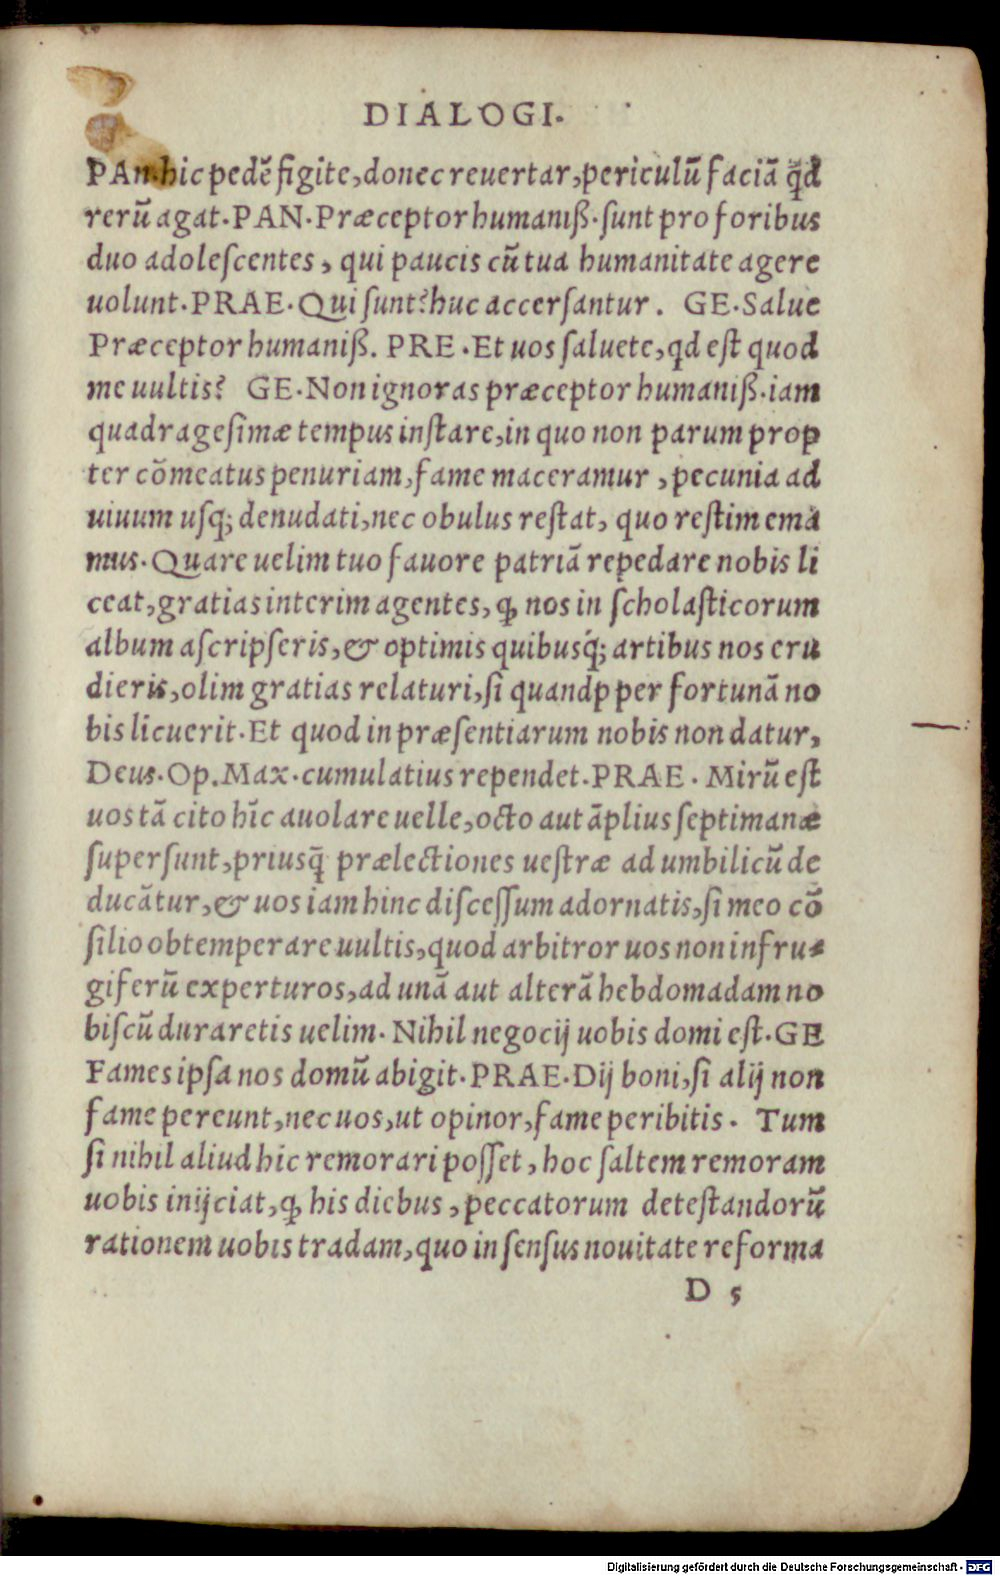 DIALOGI.
PAn. hic pedē figite, donec reuertar, periculū faciā qd̄
rerū agat. PAN. Præceptor humaniß. sunt pro foribus
duo adolescentes, qui paucis cū tua humanitate agere
uolunt. PRAE. Qui sunt? huc accersantur. GE. Salue
Præceptor humaniß. PRE. Et uos saluete, qd est quod
me uultis? GE. Non ignoras præceptor humaniß. iam
quadragesimæ tempus instare, in quo non parum prop
ter cōmeatus penuriam, fame maceramur, pecunia ad
uiuum usq; denudati, nec obulus restat, quo restim ema
mus. Quare uelim tuo fauore patriā repedare nobis li
ceat, gratias interim agentes, ꝙ nos in scholasticorum
album ascripseris, & optimis quibusq́; artibus nos eru
dieris, olim gratias relaturi, si quandp per fortunā no
bis licuerit. Et quod in præsentiarum nobis non datur,
Deus. Op. Max. cumulatius rependet. PRAE. Mirū est
uos tā cito hīc auolare uelle, octo aut āplius septimanæ
supersunt, priusq̄ prælectiones uestræ ad umbilicū de
ducātur, & uos iam hinc discessum adornatis, si meo cō
silio obtemperare uultis, quod arbitror uos non infru⸗
giferū experturos, ad unā aut alterā hebdomadam no
biscū duraretis uelim. Nihil negocij uobis domi est. GE
Fames ipsa nos domū abigit. PRAE. Dij boni, si alij non
fame pereunt, nec uos, ut opinor, fame peribitis. Tum
si nihil aliud hic remorari posset, hoc saltem remoram
uobis inijciat, ꝙ his diebus, peccatorum detestandorū
rationem uobis tradam, quo in sensus nouitate reforma
D 5
Digitalisierung gefördert durch die Deutsche Forschungsgemeinschaft - DFG